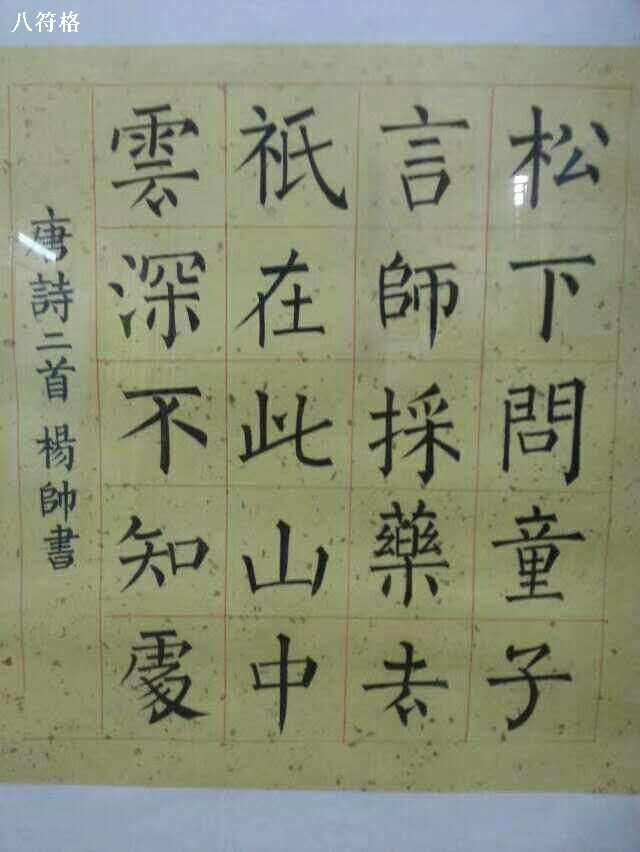 八符格
松下問童子
言師採藥去
祇在此山中
雲深不知處
唐詩二首 楊帥書